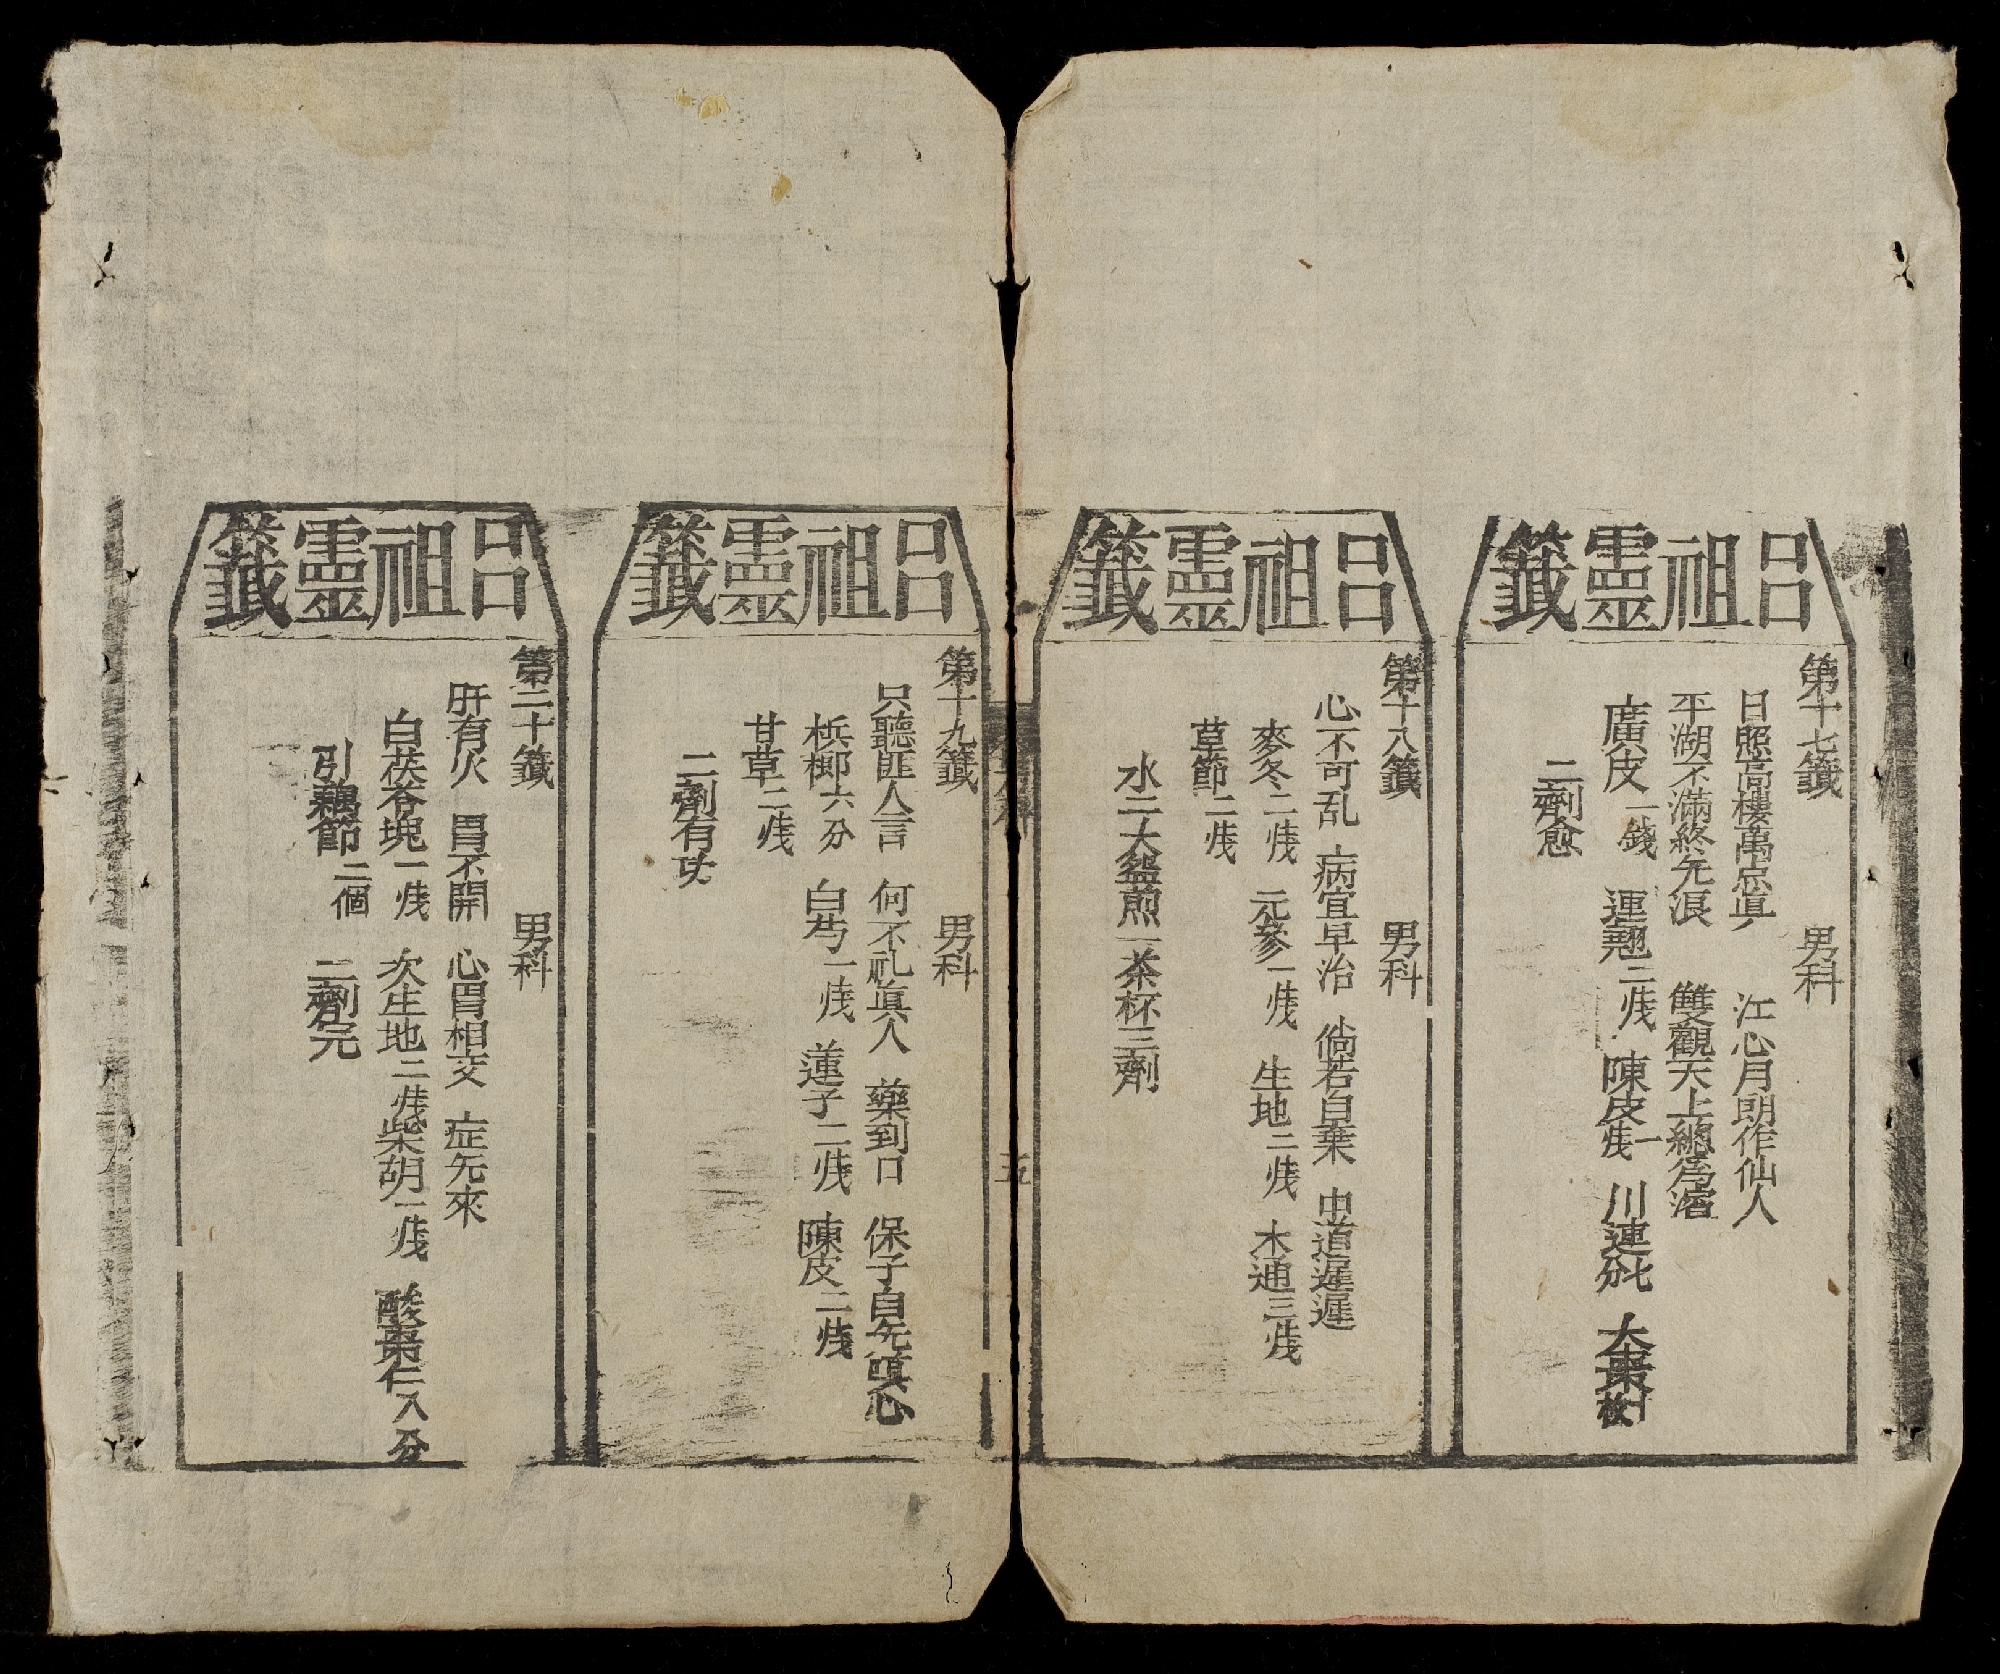 呂祖靈籤
第十七籤　男科
日照高樓萬忘真　江心月朗作仙人
平湖不滿終无浪　雙觀天上總為濱
廣皮一錢　連翹二戋　陳皮一戋　川連七分　大棗十枚
二劑愈
呂祖靈籤
第十八籤　男科
心不可乱　病宜早治　倘若自棄　中道遲遲
麥冬二戋　元參一戋　生地二戋　木通三戋
草節二戋
水二大盌煎一茶杯三劑
五
呂祖靈籤
第十九籤　男科
只聽匪人言　何不礼真人　藥到口　保子自先嗔心
梹榔六分　白芍一戋　蓮子二戋　陳皮二戋
甘草二戋
二劑有功
呂祖靈籤
第二十籤　男科
肝有火　胃不開　心胃相交　症先來
白茯苓塊一戋　次生地二戋　柴胡一戋　酸棗仁八分
引藕節二個　二劑完